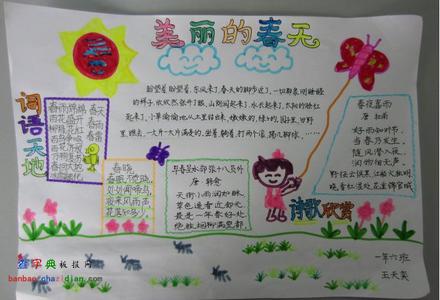 美丽的春天
盼望着盼望着，东风来了，春天的脚步近了，一切都象刚睡醒
的样子，欣欣然张开了眼，山朗润起来了，水长起来了，太阳的脸红
起来了，小草偷偷地从土里钻出来，嫩嫩的，绿绿的，园子里，田野
里，瞧去，一大片一大片满是的，坐着，躺着，打两个滚，踢几脚球，……
词语天地
春天
春晓
春眠不觉晓，
处处闻啼鸟，
夜来风雨声，
花落知多少。
早春呈水部张十八员外
唐 韩愈
天街小雨润如酥，
草色遥看近却无，
最是一年春好处，
绝胜烟柳满皇都。
春夜喜雨
唐 杜甫
好雨知时节，
当春乃发生，
随风潜入夜，
润物细无声，
野径云俱黑，江船火独明，
晓看红湿处，花重锦官城
诗歌欣赏
一年六班
王天奕
查字典 板报网
banbao.chazidian.com